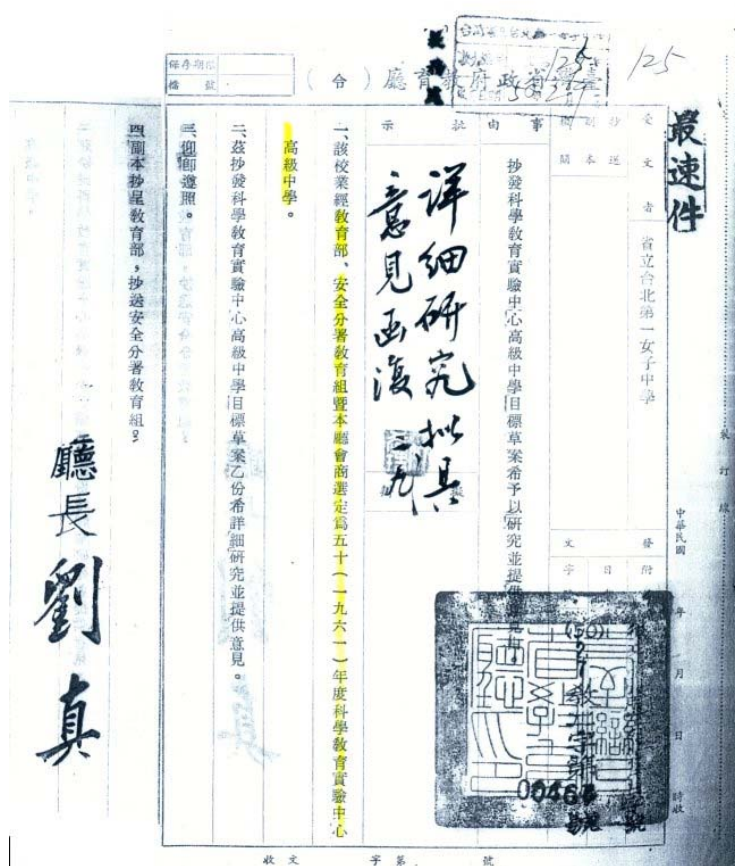 125
最速件
臺灣省政府教育廳（令）
保存期限
檔號
受文者
省立台北第一女子中學
抄送副本機關
事由
抄發科學教育實驗中心高級中學目標草案希予以研究並提供意見由。
批示
詳細研究擬具
意見函復
一、該校業經教育部、安全分署教育組暨本廳會商選定為五十（一九六一）年度科學教育實驗中心
高級中學。
二、茲抄發科學教育實驗中心高級中學目標草案乙份希詳細研究並提供意見。
三、仰即遵照。
四、副本抄呈教育部，抄送安全分署教育組。
廳長 劉真
中華民國 年 月 日 時收
裝訂線
收文 字第 號